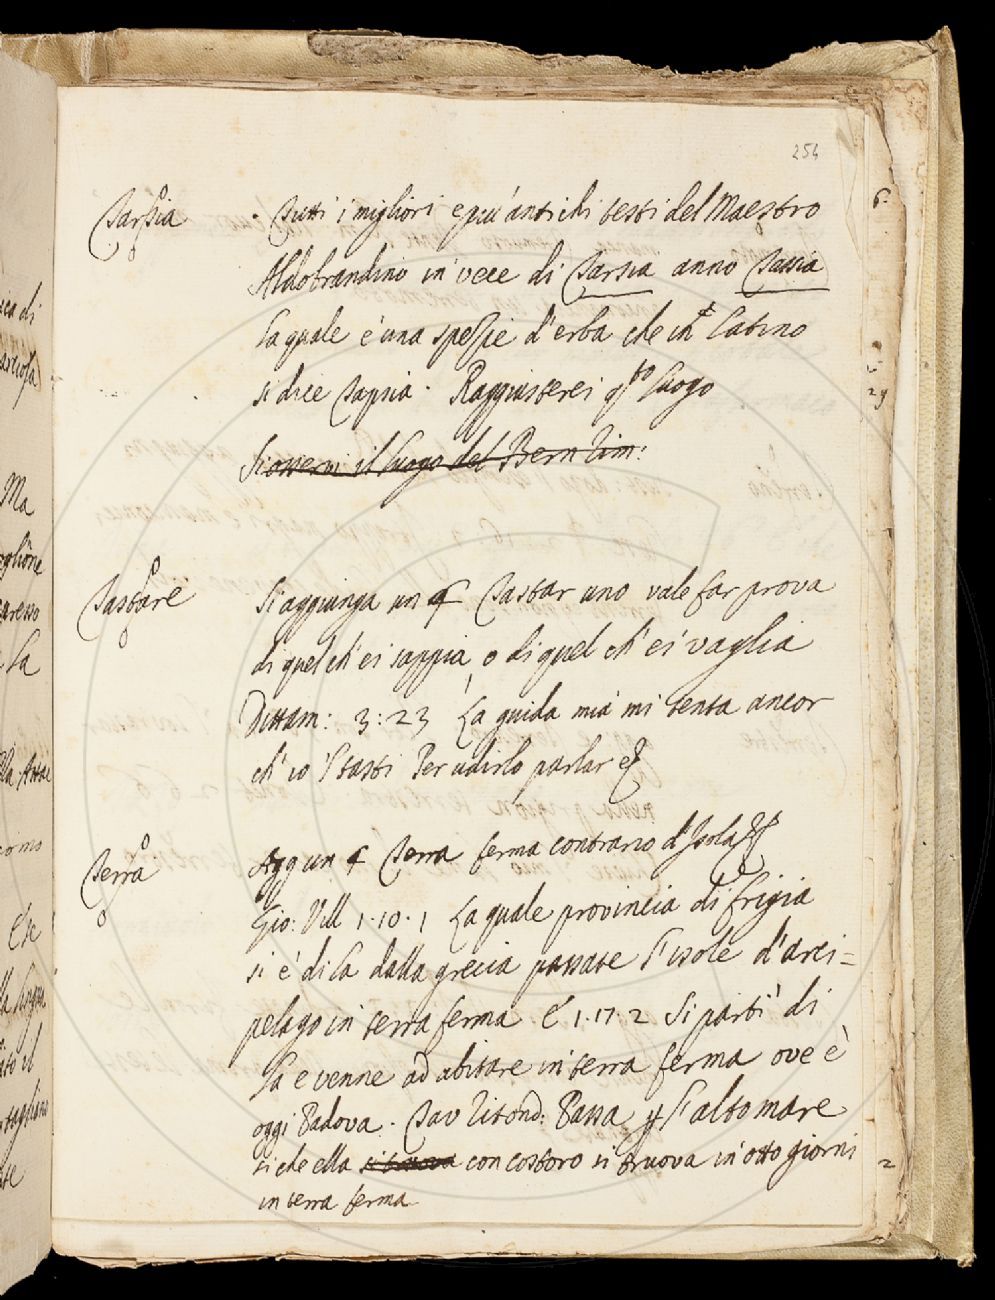 254
Tarsia
Tutti i migliori e più antichi testi del Maestro
Aldobrandino in vece di Tarsia anno Tassia
la quale è una spezie d'erba che in Latino
si dice Tapsia. Raggiusterei qto luogo
Si osservi il luogo del Bern Rim:
Tastare
Si aggiunga un § Tastar uno vale far prova
di quel ch'ei sappia, o di quel ch'ei vaglia
Dittam: 3:23 La guida mia mi tenta ancor
ch'io 'l tasti Per udirlo parlar &
Terra
Agg un § Terra ferma contrario d'Isola
Gio: Vill 1.10.1 La quale provincia di Frigia
si è di là dalla grecia passate l'isole d'arci=
pelago in terra ferma E 1.17.2 Si partì di
là e venne ad abitare in terra ferma ove è
oggi Padova. Tav Ritond: Passa p l'alto mare
siche ella si trova con costoro si truova in otto giorni
in terra ferma
6
29
2
ca di
Ma
oglione
la
come